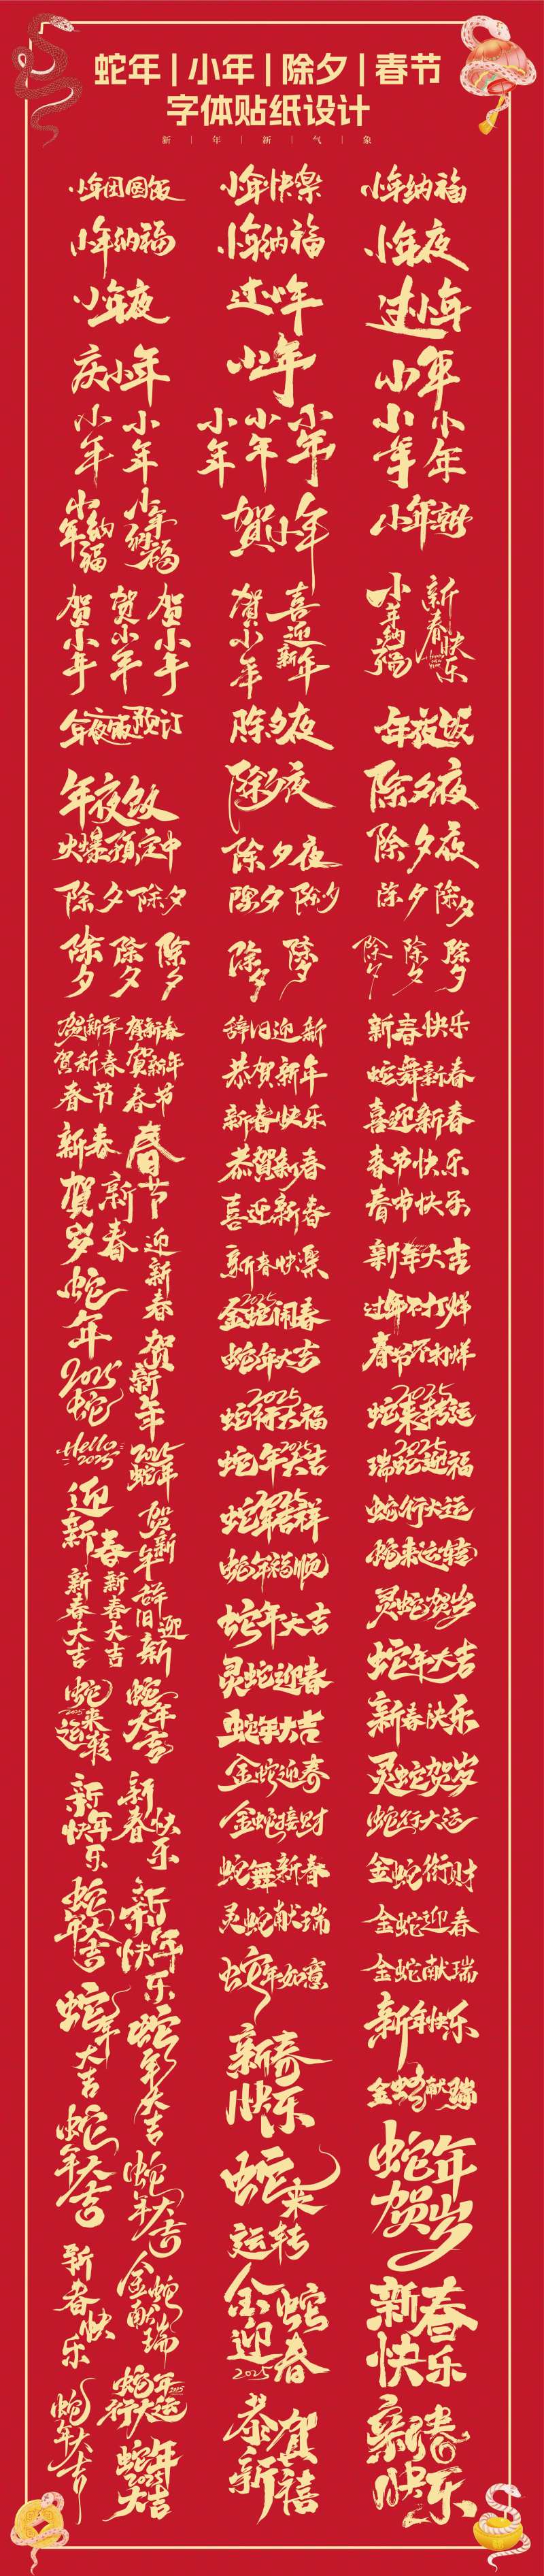 蛇年|小年|除夕|春节
字体贴纸设计
新 | 年 | 新 | 气 | 象
小年团圆饭 小年快樂 小年纳福
小年纳福 小年纳福 小年夜
小年夜 过小年 过小年
庆小年 小年 小年
小年 小年 小年 小年 小年 小年 小年
小年纳福 小年纳福 贺小年
贺小年 贺小年 贺小年 贺小年 喜迎新年 小年纳福 新春快乐
年夜饭预订 除夕夜 年夜饭
年夜饭 除夕夜 除夕夜
火爆预定中 除夕夜 除夕夜
除夕 除夕 除夕 除夕 除夕 除夕
除夕 除夕 除夕 除夕 除夕 除夕 除夕 除夕
贺新年 贺新春 辞旧迎新 新春快乐
贺新春 賀新年 恭贺新年 蛇舞新春
春节 春节 新春快乐 喜迎新春
新春 春节 恭賀新春 春节快乐
贺岁新春 喜迎新春 春节快乐
迎新春 新春快樂 新年大吉
蛇年 金蛇闹春 2025 过年不打烊
贺新年 蛇年大吉 春节不打烊
2025 蛇 2025 蛇行大福 2025 蛇来转运
Hello 2025 2025 蛇年 蛇年大吉 2025 瑞蛇迎福 2025
迎新春 贺新年 2025 蛇年吉祥 蛇行大运
新春大吉 新春大吉 辞旧迎新 蛇年福顺
蛇年大吉 灵蛇贺岁
灵蛇迎春 蛇年大吉
蛇来运转 2025 蛇年大吉 蛇年大吉 新春快乐
新年快乐 新春快乐 金蛇迎春 灵蛇贺岁
金蛇接财 蛇行大运
蛇年大吉 新年快乐 蛇舞新春 金蛇衔财
灵蛇献瑞 金蛇迎春
蛇年大吉 蛇年大吉 蛇年如意 金蛇献瑞
新春快乐 新年快乐
蛇年大吉 蛇年大吉 金蛇献瑞
蛇来运转 蛇年贺岁
新春快乐 金蛇献瑞 金蛇迎春 2025 新春快乐
蛇年大吉 蛇年行大运 2025 恭贺新禧 新春快乐
蛇年大吉 2025